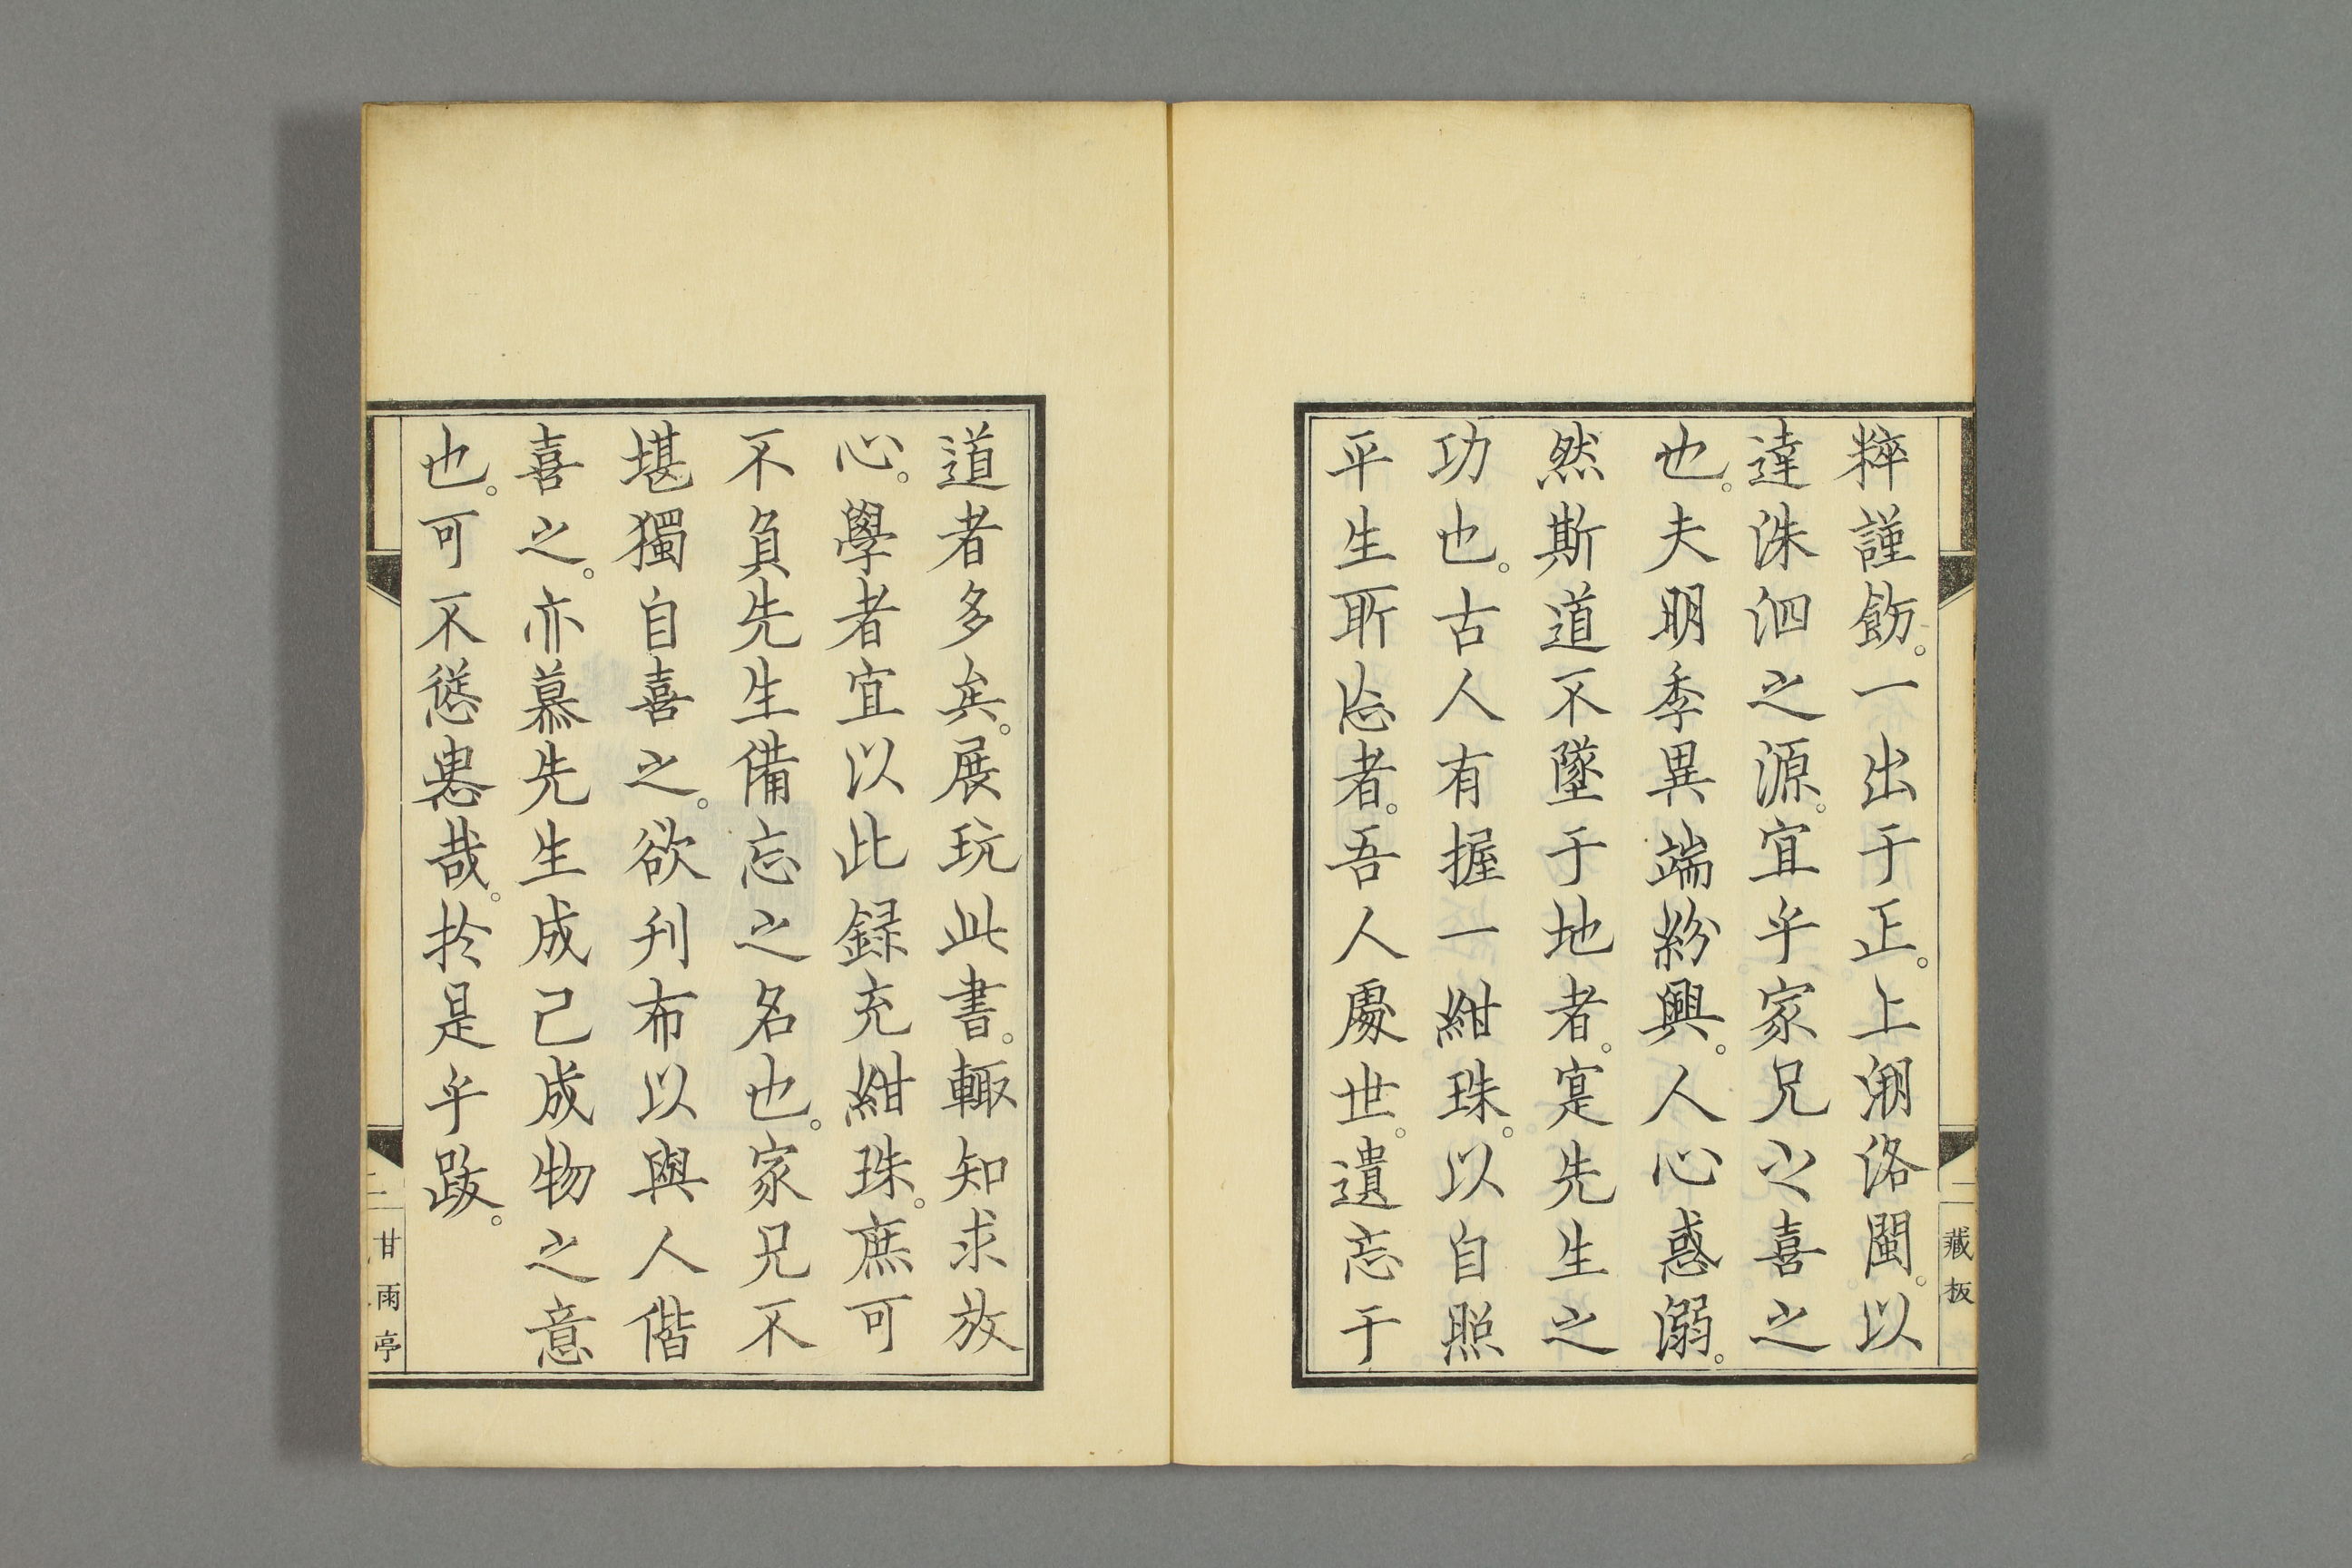 粹謹飭。一出于正。上泝洛閩。以
達洙泗之源。宜乎家兄之喜之
也。夫明季異端紛興。人心惑溺。
然斯道不墜于地者。寔先生之
功也。古人有握一紺珠。以自照
平生所忘者。吾人處世。遺忘于
道者多矣。展玩此書。輙知求放
心。學者宜以此録充紺珠。庶可
不負先生備忘之名也。家兄不
堪獨自喜之。欲刊布以與人偕
喜之。亦慕先生成己成物之意
也。可不慫慂哉。於是乎跋。
二 藏板
二 甘雨亭